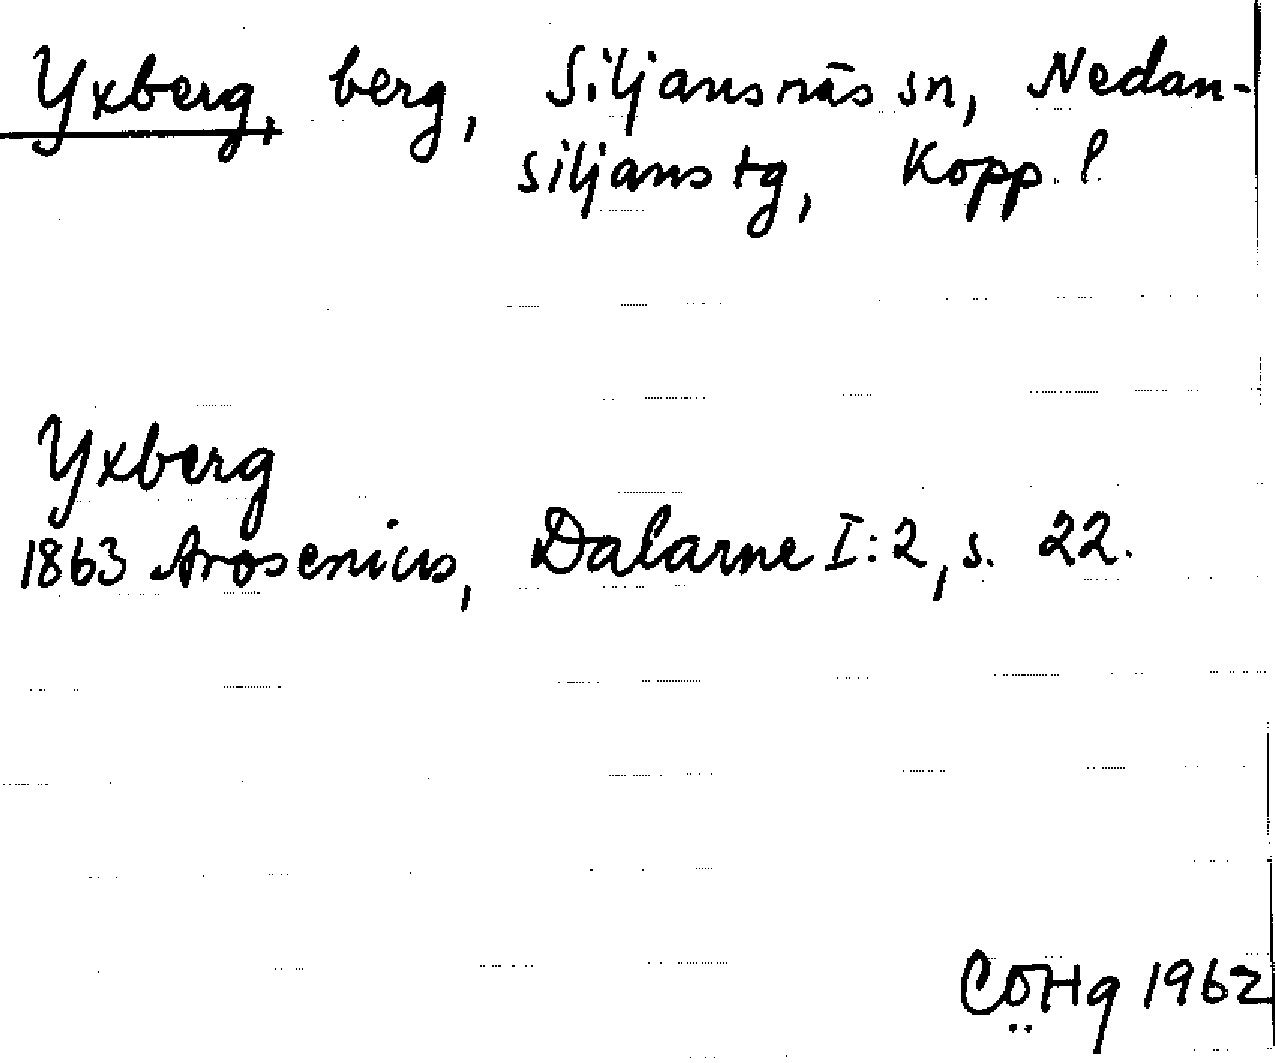 Yxberg, berg, Siljansnäs sn, Nedan-
siljans tg, Kopp. l.
Yxberg
1863 Arosenius, Dalarne I:2, s. 22.
CÖHg 1962